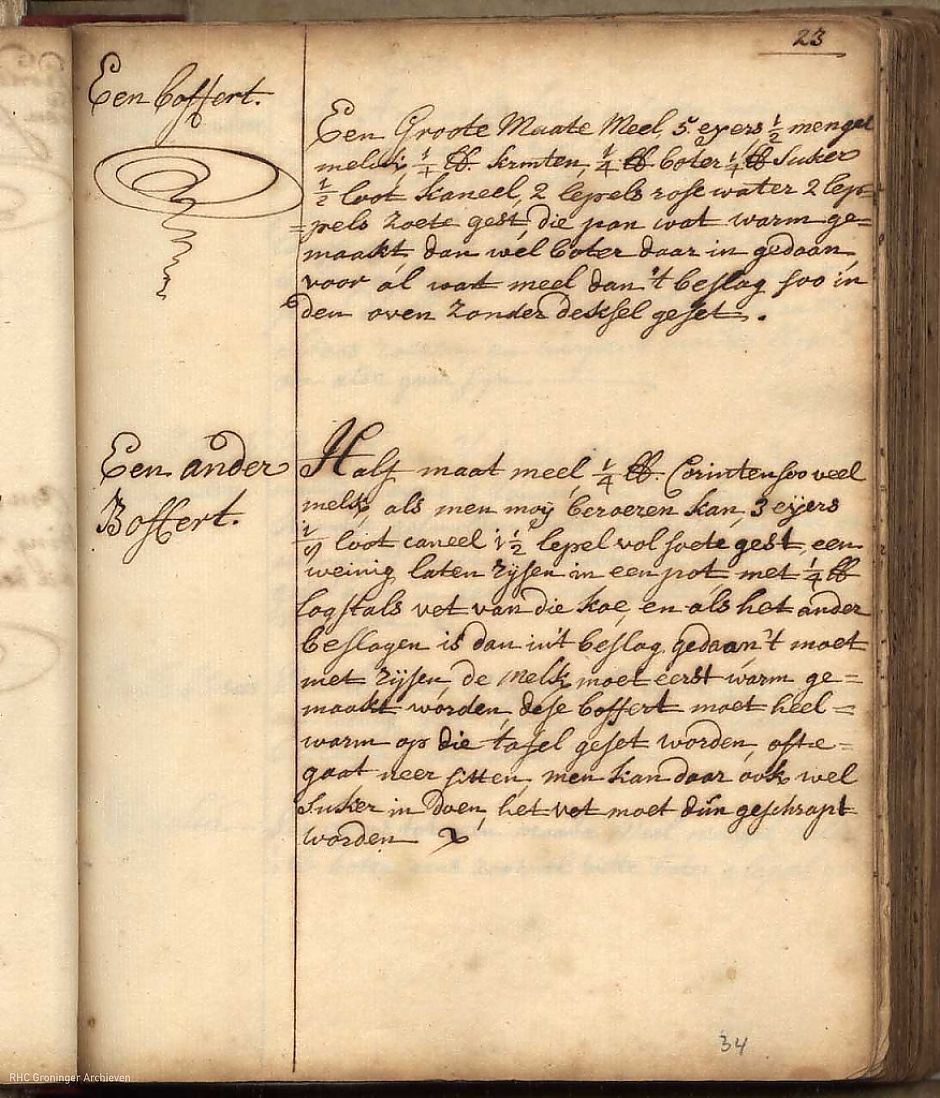 23
Een boffert.
Een Groote Maate Meel, 5 eyers ½ mengel
melk, ¼ ℔. krinten, ¼ ℔ boter ¼ ℔ Suker
½ loot kaneel, 2 lepels rose water 2 lep=
=pels zoete gest, die pan wat warm ge=
maakt dan wel boter daar in gedaan,
voor al wat meel dan 't beslag soo in
den oven zonder deksel geset.
Een ander
Boffert.
Half maat meel, ¼ ℔. Corinten soo veel
melk, als men moÿ beroeren kan, 3 eÿers
½ loot caneel 1½ lepel vol soete gest, een
weinig laten rÿsen in een pot, met ¼ ℔
logstals vet van die koe, en als het ander
beslagen is dan in't beslag gedaan 't moet
met rÿsen de Melk moet eerst warm ge=
maakt worden, dese boffert moet heel=
warm op die tafel geset worden, ofte=
gaat neer sitten, men kan daar ook wel
Suker in doen, het vet moet dun geschrapt
worden
34
RHC Groninger Archieven